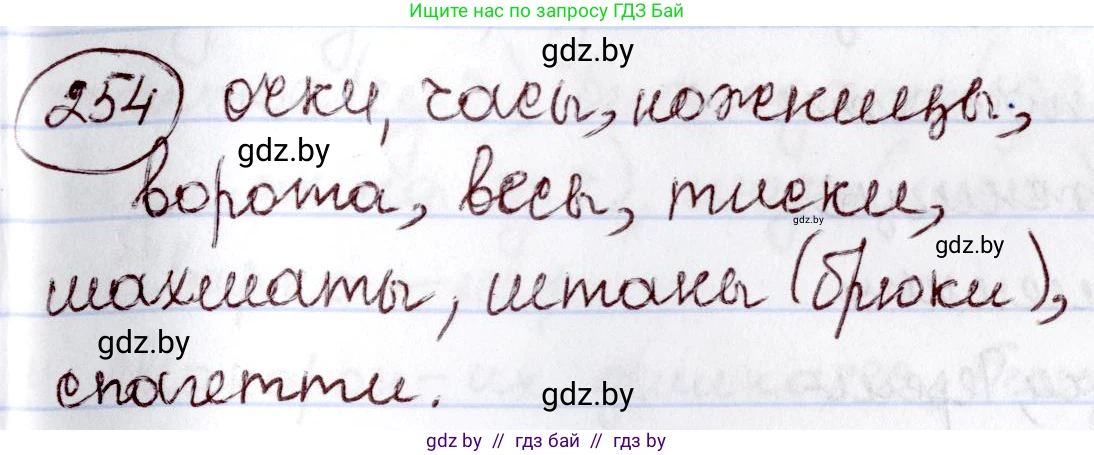 Ищите нас по запросу ГДЗ Бай
gdz.by
254 очки, часы, ножницы,
gdz.by
ворота, весы, тиски,
gdz.by
gdz.by
шахматы, штаны (брюки),
gdz.by
спагетти.
gdz.by
gdz.by // гдз бай // гдз by